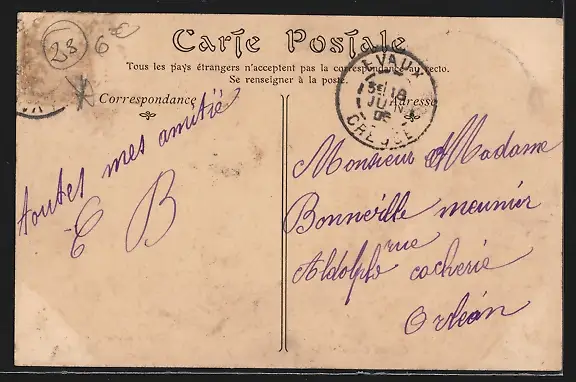 28
6e
Carte Postale
Tous les pays étrangers n'acceptent pas la correspondance au recto.
Se renseigner à la poste.
Correspondance
Adresse
EVAUX
3E 18
JUIN
CREUSE
toutes mes amitié
E B
Monsieur et Madame
Bonneville meunier
rue
Aldolphe cocherie
Orléan